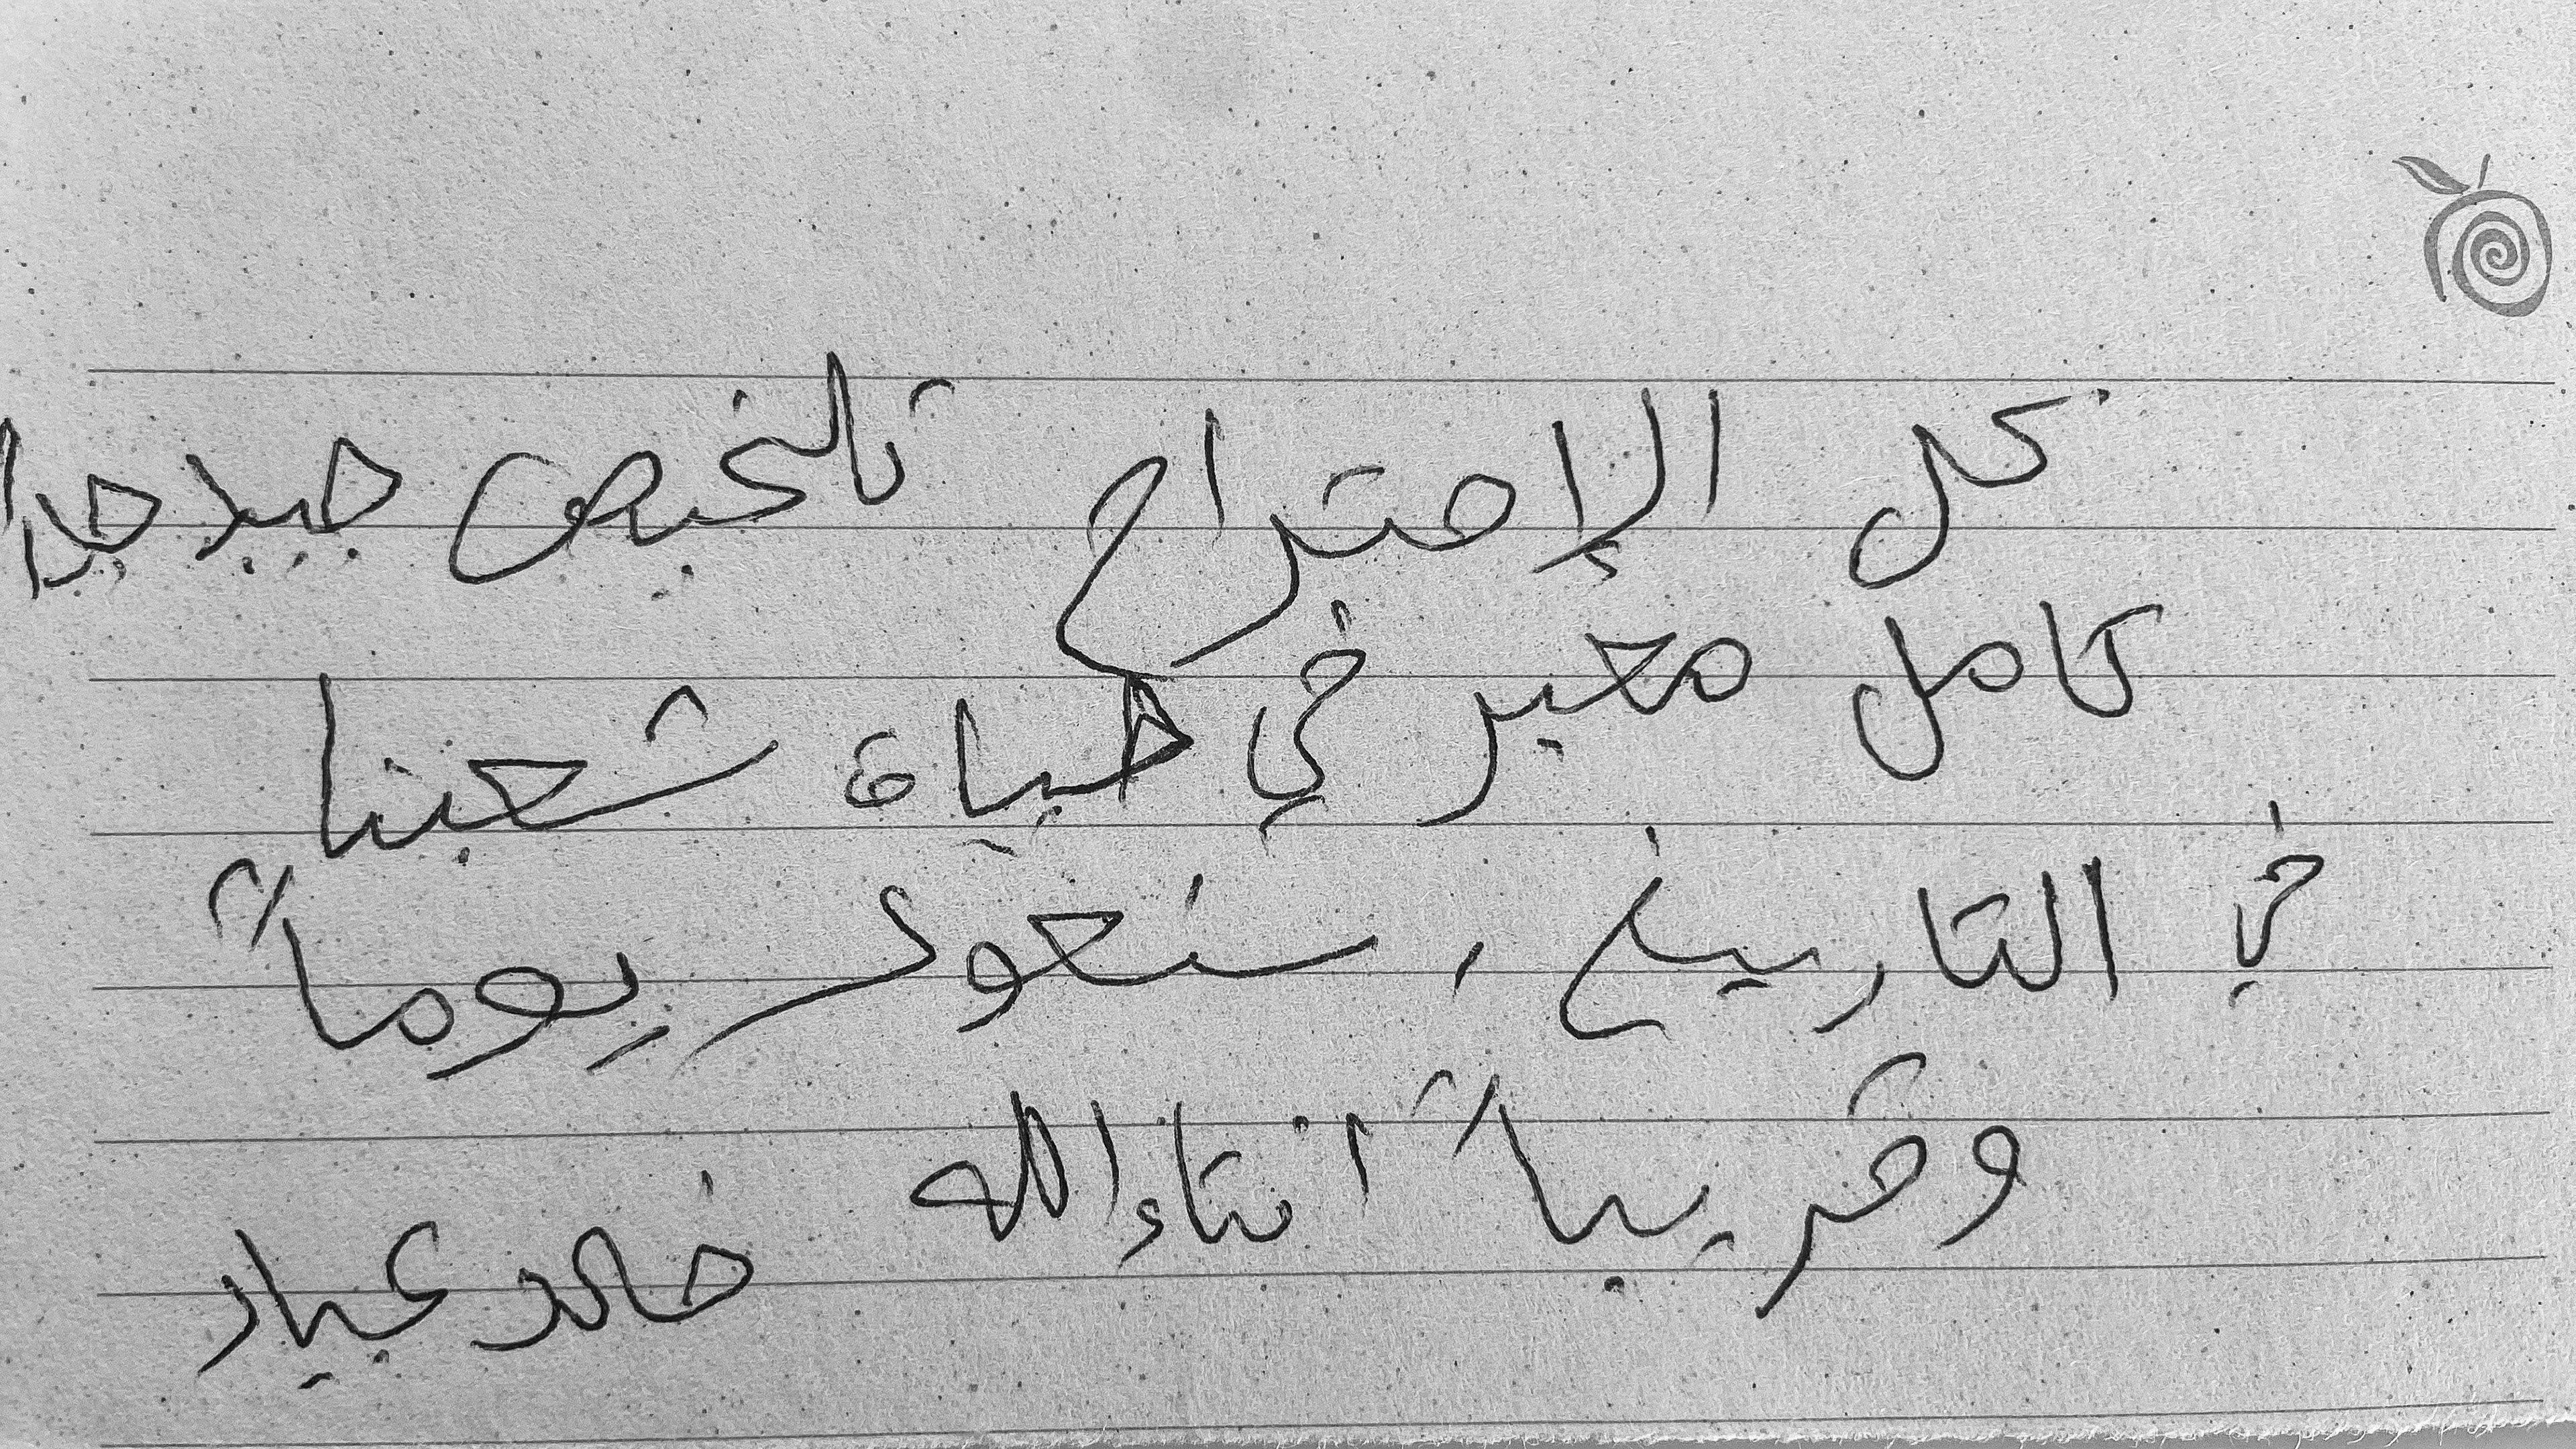 كل الإحترام تلخيص جيد جدا
كامل معبر في حياة شعبنا
في التاريخ، سنعود يوماً
وقريباً انشاء الله خالد عياد